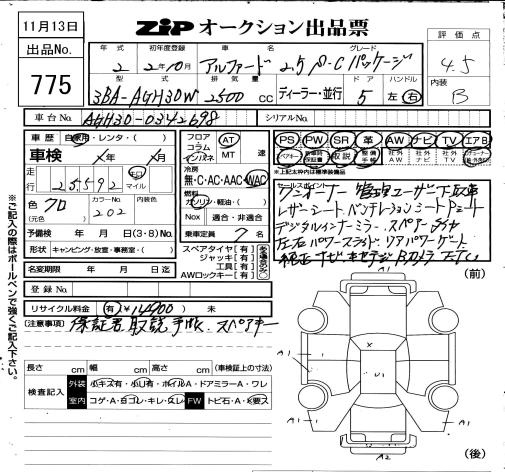 11月13日
ZiP オークション出品票
出品No.
775
年式
初年度登録
車名
グレード
評価点
2
2年10月
アルファード
2.5
パッケージ
4.5
型式
排気量
ドア
ハンドル
内装
3BA-AGH30W
2500 cc
ディーラー・並行
5
左・右
B
車台No.
AGH30-0342698
シリアルNo.
車歴
自家用・レンタ・( )
車検
年 月
走行
25592
キロ
マイル
色
クロ
(元色)
カラーNo.
202
予備検
年 月 日(3・8)No.
形状
キャンピング・放置・事務室・( )
名変期限
年 月 日迄
登録No.
リサイクル料金
有 ¥14900 未
フロア
コラム
インパネ
AT
MT
速
冷房
無・C・AC・AAC・WAC
燃料
ガソリン・軽油・( )
Nox
適合・非適合
乗車定員
7 名
スペアタイヤ[有]
ジャッキ[有]
工具[有]
AWロックキー[有]
PS PW SR 革 AW ナビ TV エアB
取説
社外
↑上記太枠内は標準装備品
セールスポイント
ワンオーナー 管理ユーザー下取車
レザーシート ベンチレーションシート
デジタルインナーミラー スペアータイヤ
左右パワースライド リアパワーゲート
純正ナビ
(注意事項)
保証書 取説 手帳 スペアキー
長さ cm 幅 cm 高さ cm (車検証上の寸法)
検査記入
外装
小キズ有・小U有・ホイルA・ドアミラーA・ワレ
室内
コゲ・A・白ゴレ・キレ・スレ
FW
トビ石・A・X要ス
※ご記入の際はボールペンで強くご記入下さい。
(前)
A1
A1
X
U1
A1
A1
A2
(後)